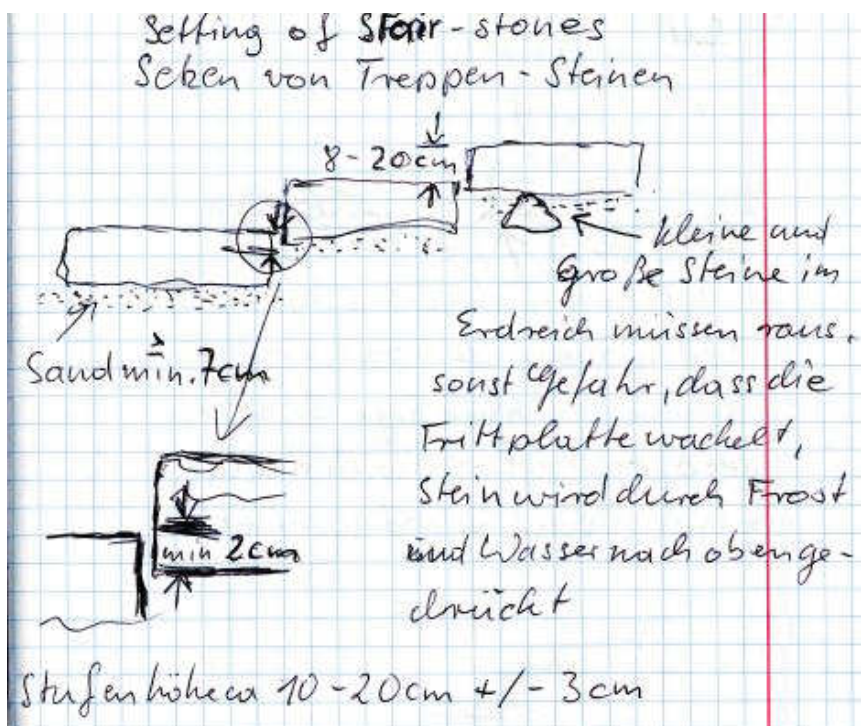 Setting of Stair-stones
Setzen von Treppen-Steinen
8-20cm
kleine und
große Steine im
Erdreich müssen raus,
sonst Gefahr, dass die
Trittplatte wackelt,
Stein wird durch Frost
und Wasser nach oben ge-
drückt
Sand min. 7cm
min 2cm
Stufenhöhe ca 10-20cm +/- 3cm